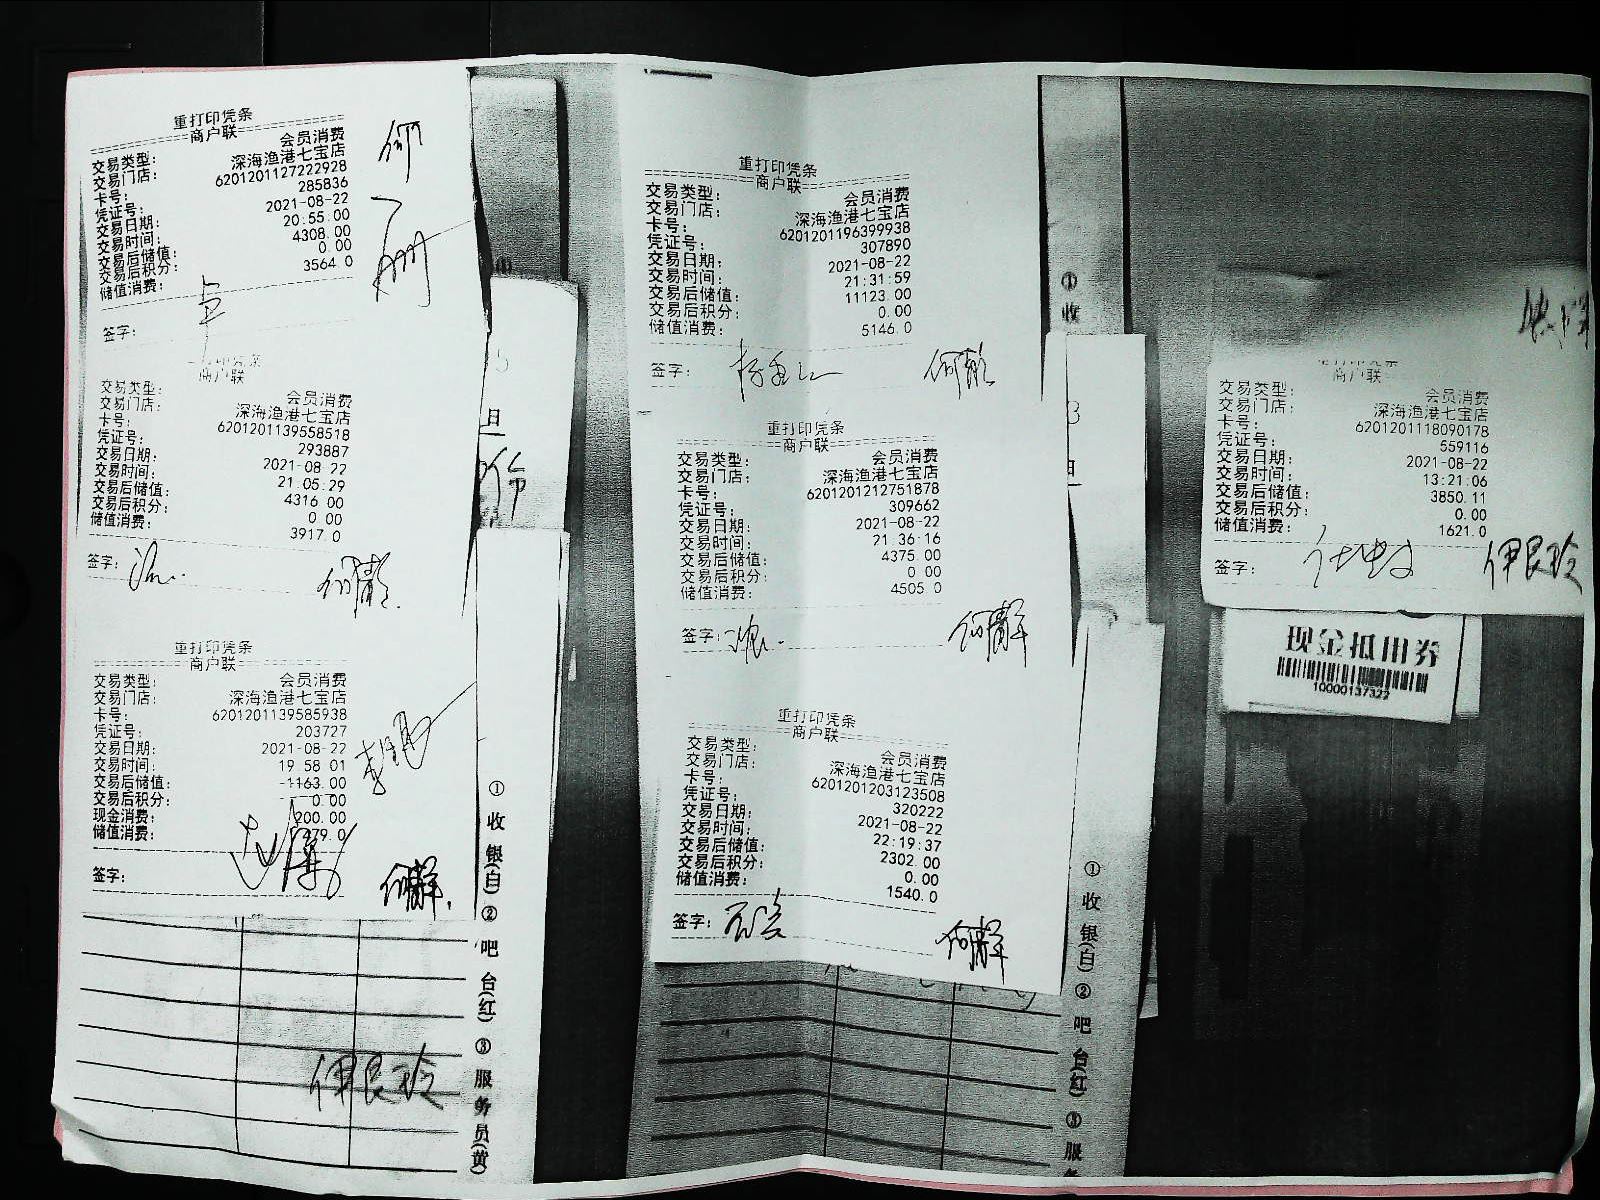 重打印凭条
商户联
交易类型： 会员消费
交易门店： 深海渔港七宝店
卡号： 6201201127222928
凭证号： 285836
交易日期： 2021-08-22
交易时间： 20:55:00
交易后储值： 4308.00
交易后积分： 0.00
储值消费： 3564.0
签字：
商户联
交易类型： 会员消费
交易门店： 深海渔港七宝店
卡号： 6201201139558518
凭证号： 293887
交易日期： 2021-08-22
交易时间： 21:05:29
交易后储值： 4316.00
交易后积分： 0.00
储值消费： 3917.0
签字：
重打印凭条
商户联
交易类型： 会员消费
交易门店： 深海渔港七宝店
卡号： 6201201139585938
凭证号： 203727
交易日期： 2021-08-22
交易时间： 19:58:01
交易后储值： -1163.00
交易后积分： 0.00
现金消费： 200.00
储值消费：
签字：
伊良玲
①收银(白)②吧台(红)③服务员(黄)
重打印凭条
商户联
交易类型： 会员消费
交易门店： 深海渔港七宝店
卡号： 6201201196399938
凭证号： 307890
交易日期： 2021-08-22
交易时间： 21:31:59
交易后储值： 11123.00
交易后积分： 0.00
储值消费： 5146.0
签字：
重打印凭条
商户联
交易类型： 会员消费
交易门店： 深海渔港七宝店
卡号： 6201201212751878
凭证号： 309662
交易日期： 2021-08-22
交易时间： 21:36:16
交易后储值： 4375.00
交易后积分： 0.00
储值消费： 4505.0
签字：
重打印凭条
商户联
交易类型： 会员消费
交易门店： 深海渔港七宝店
卡号： 6201201203123508
凭证号： 320222
交易日期： 2021-08-22
交易时间： 22:19:37
交易后储值： 2302.00
交易后积分： 0.00
储值消费： 1540.0
签字：
①收
①收银(白)②吧台(红)③服
商户联
交易类型： 会员消费
交易门店： 深海渔港七宝店
卡号： 6201201118090178
凭证号： 559116
交易日期： 2021-08-22
交易时间： 13:21:06
交易后储值： 3850.11
交易后积分： 0.00
储值消费： 1621.0
签字： 伊良玲
现金抵用券
10000137322